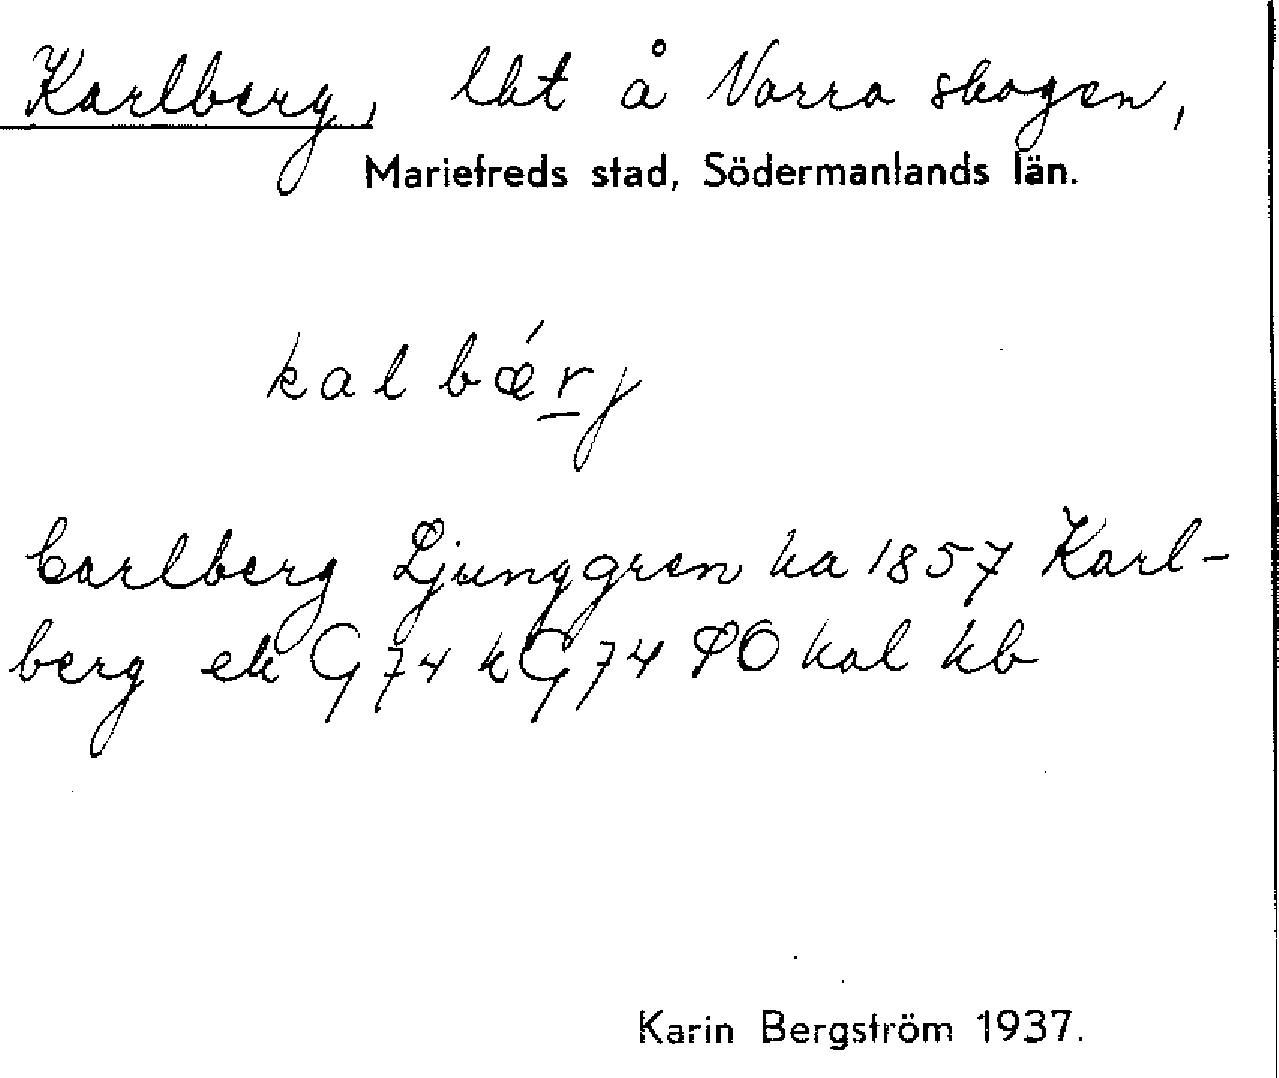 Karlberg, lht å Norra skogen,
Mariefreds stad, Södermanlands län.
kalbǽrj
Carlberg Ljunggren ka 1857 Karl-
berg ek G 74 kG 74 PO kal kb
Karin Bergström 1937.